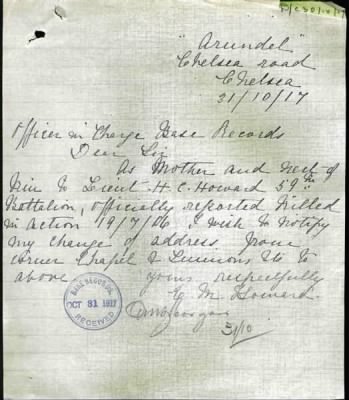 "Arundel"
Chelsea road
Chelsea
31/10/17
Officer in Charge Base Records
Dear Sir
As Mother and next of
kin to Lieut. H. C. Howard 59th
Battalion, officially reported killed
in Action 19/7/06 I wish to notify
my change of address from
corner Chapel & Simmons Sts to
above yours respectfully
E. M. Howard
31/10
BASE RECORDS
OCT 31 1917
RECEIVED